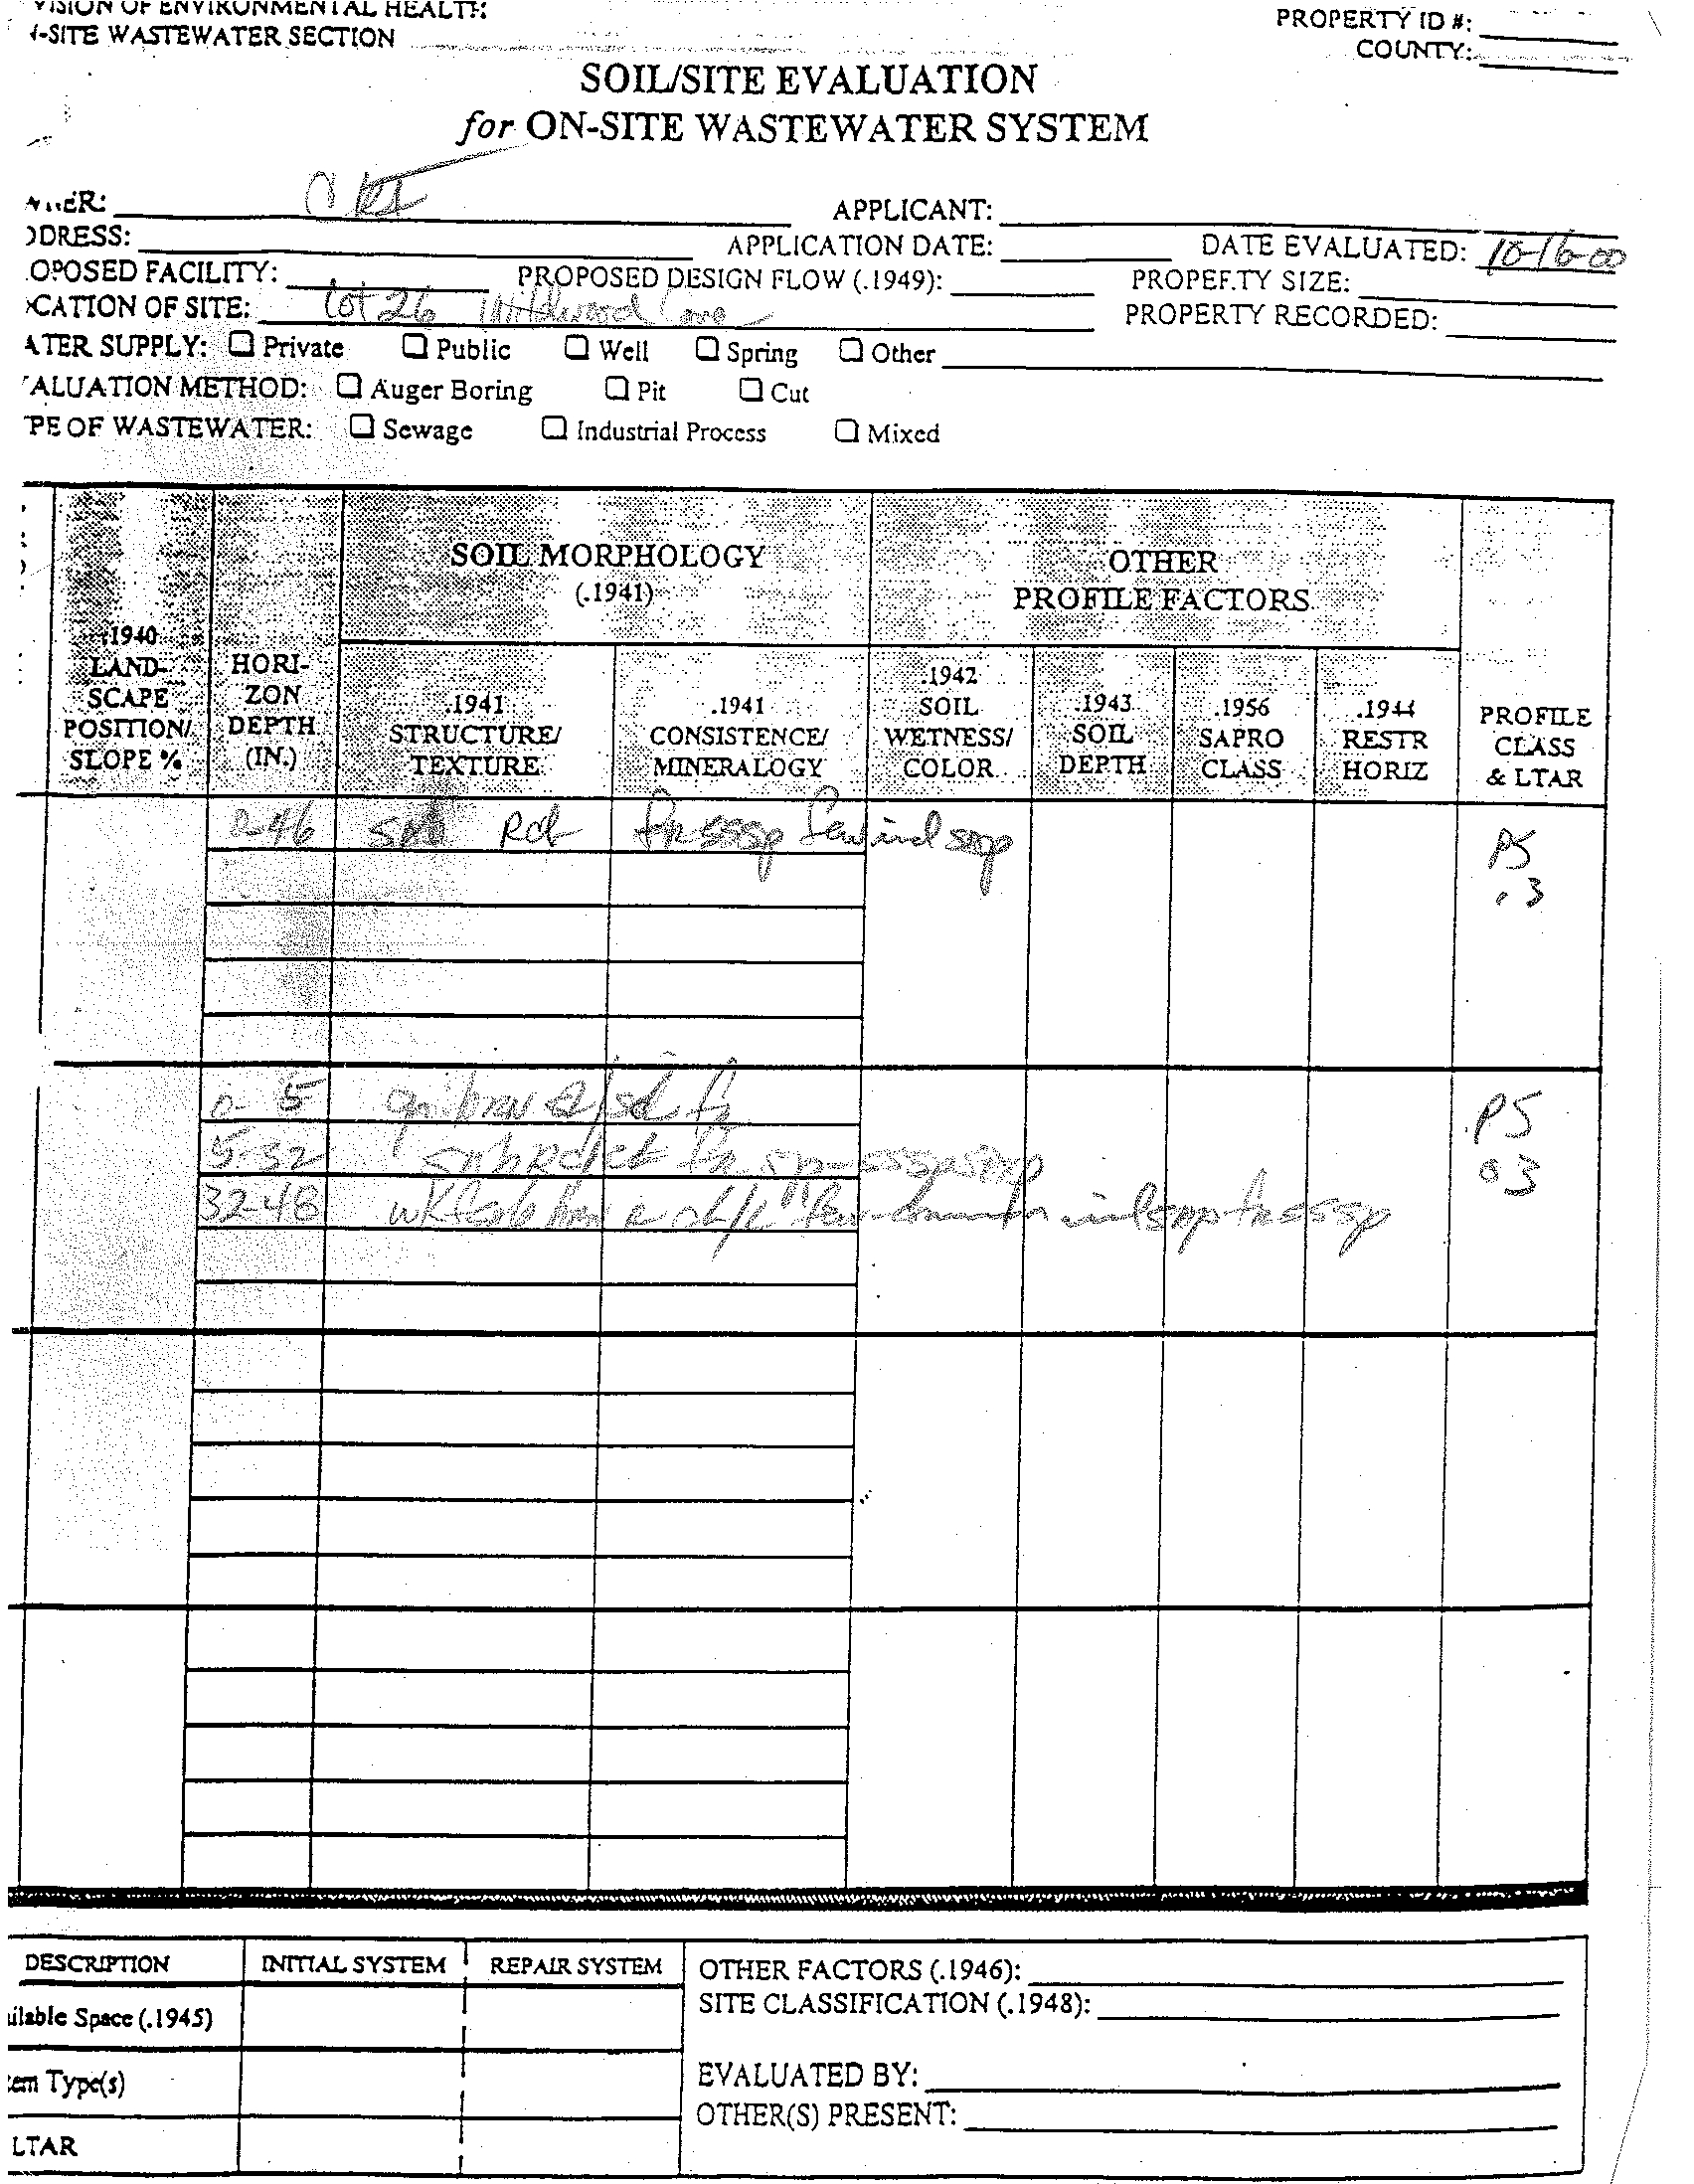 VISION OF ENVIRONMENTAL HEALTH
-SITE WASTEWATER SECTION
PROPERTY ID #:
COUNTY:
SOIL/SITE EVALUATION
for ON-SITE WASTEWATER SYSTEM
ER:
APPLICANT:
DDRESS:
APPLICATION DATE:
DATE EVALUATED: 10-16-00
OPOSED FACILITY:
PROPOSED DESIGN FLOW (.1949):
PROPERTY SIZE:
CATION OF SITE: Lot 26 Wildwood
PROPERTY RECORDED:
ATER SUPPLY: ☐ Private ☐ Public ☐ Well ☐ Spring ☐ Other
ALUATION METHOD: ☐ Auger Boring ☐ Pit ☐ Cut
PE OF WASTEWATER: ☐ Sewage ☐ Industrial Process ☐ Mixed
.1940 LAND-SCAPE POSITION/ SLOPE %
HORI-ZON DEPTH (IN.)
SOIL MORPHOLOGY
(.1941)
.1941 STRUCTURE/ TEXTURE
.1941 CONSISTENCE/ MINERALOGY
OTHER
PROFILE FACTORS
.1942 SOIL WETNESS/ COLOR
.1943 SOIL DEPTH
.1956 SAPRO CLASS
.1944 RESTR HORIZ
PROFILE CLASS & LTAR
0-46 sbk Rd fr sssp few incl
PS
.3
0-5
PS
.3
5-32
32-48
DESCRIPTION
INITIAL SYSTEM
REPAIR SYSTEM
OTHER FACTORS (.1946):
SITE CLASSIFICATION (.1948):
ilable Space (.1945)
EVALUATED BY:
em Type(s)
OTHER(S) PRESENT:
LTAR